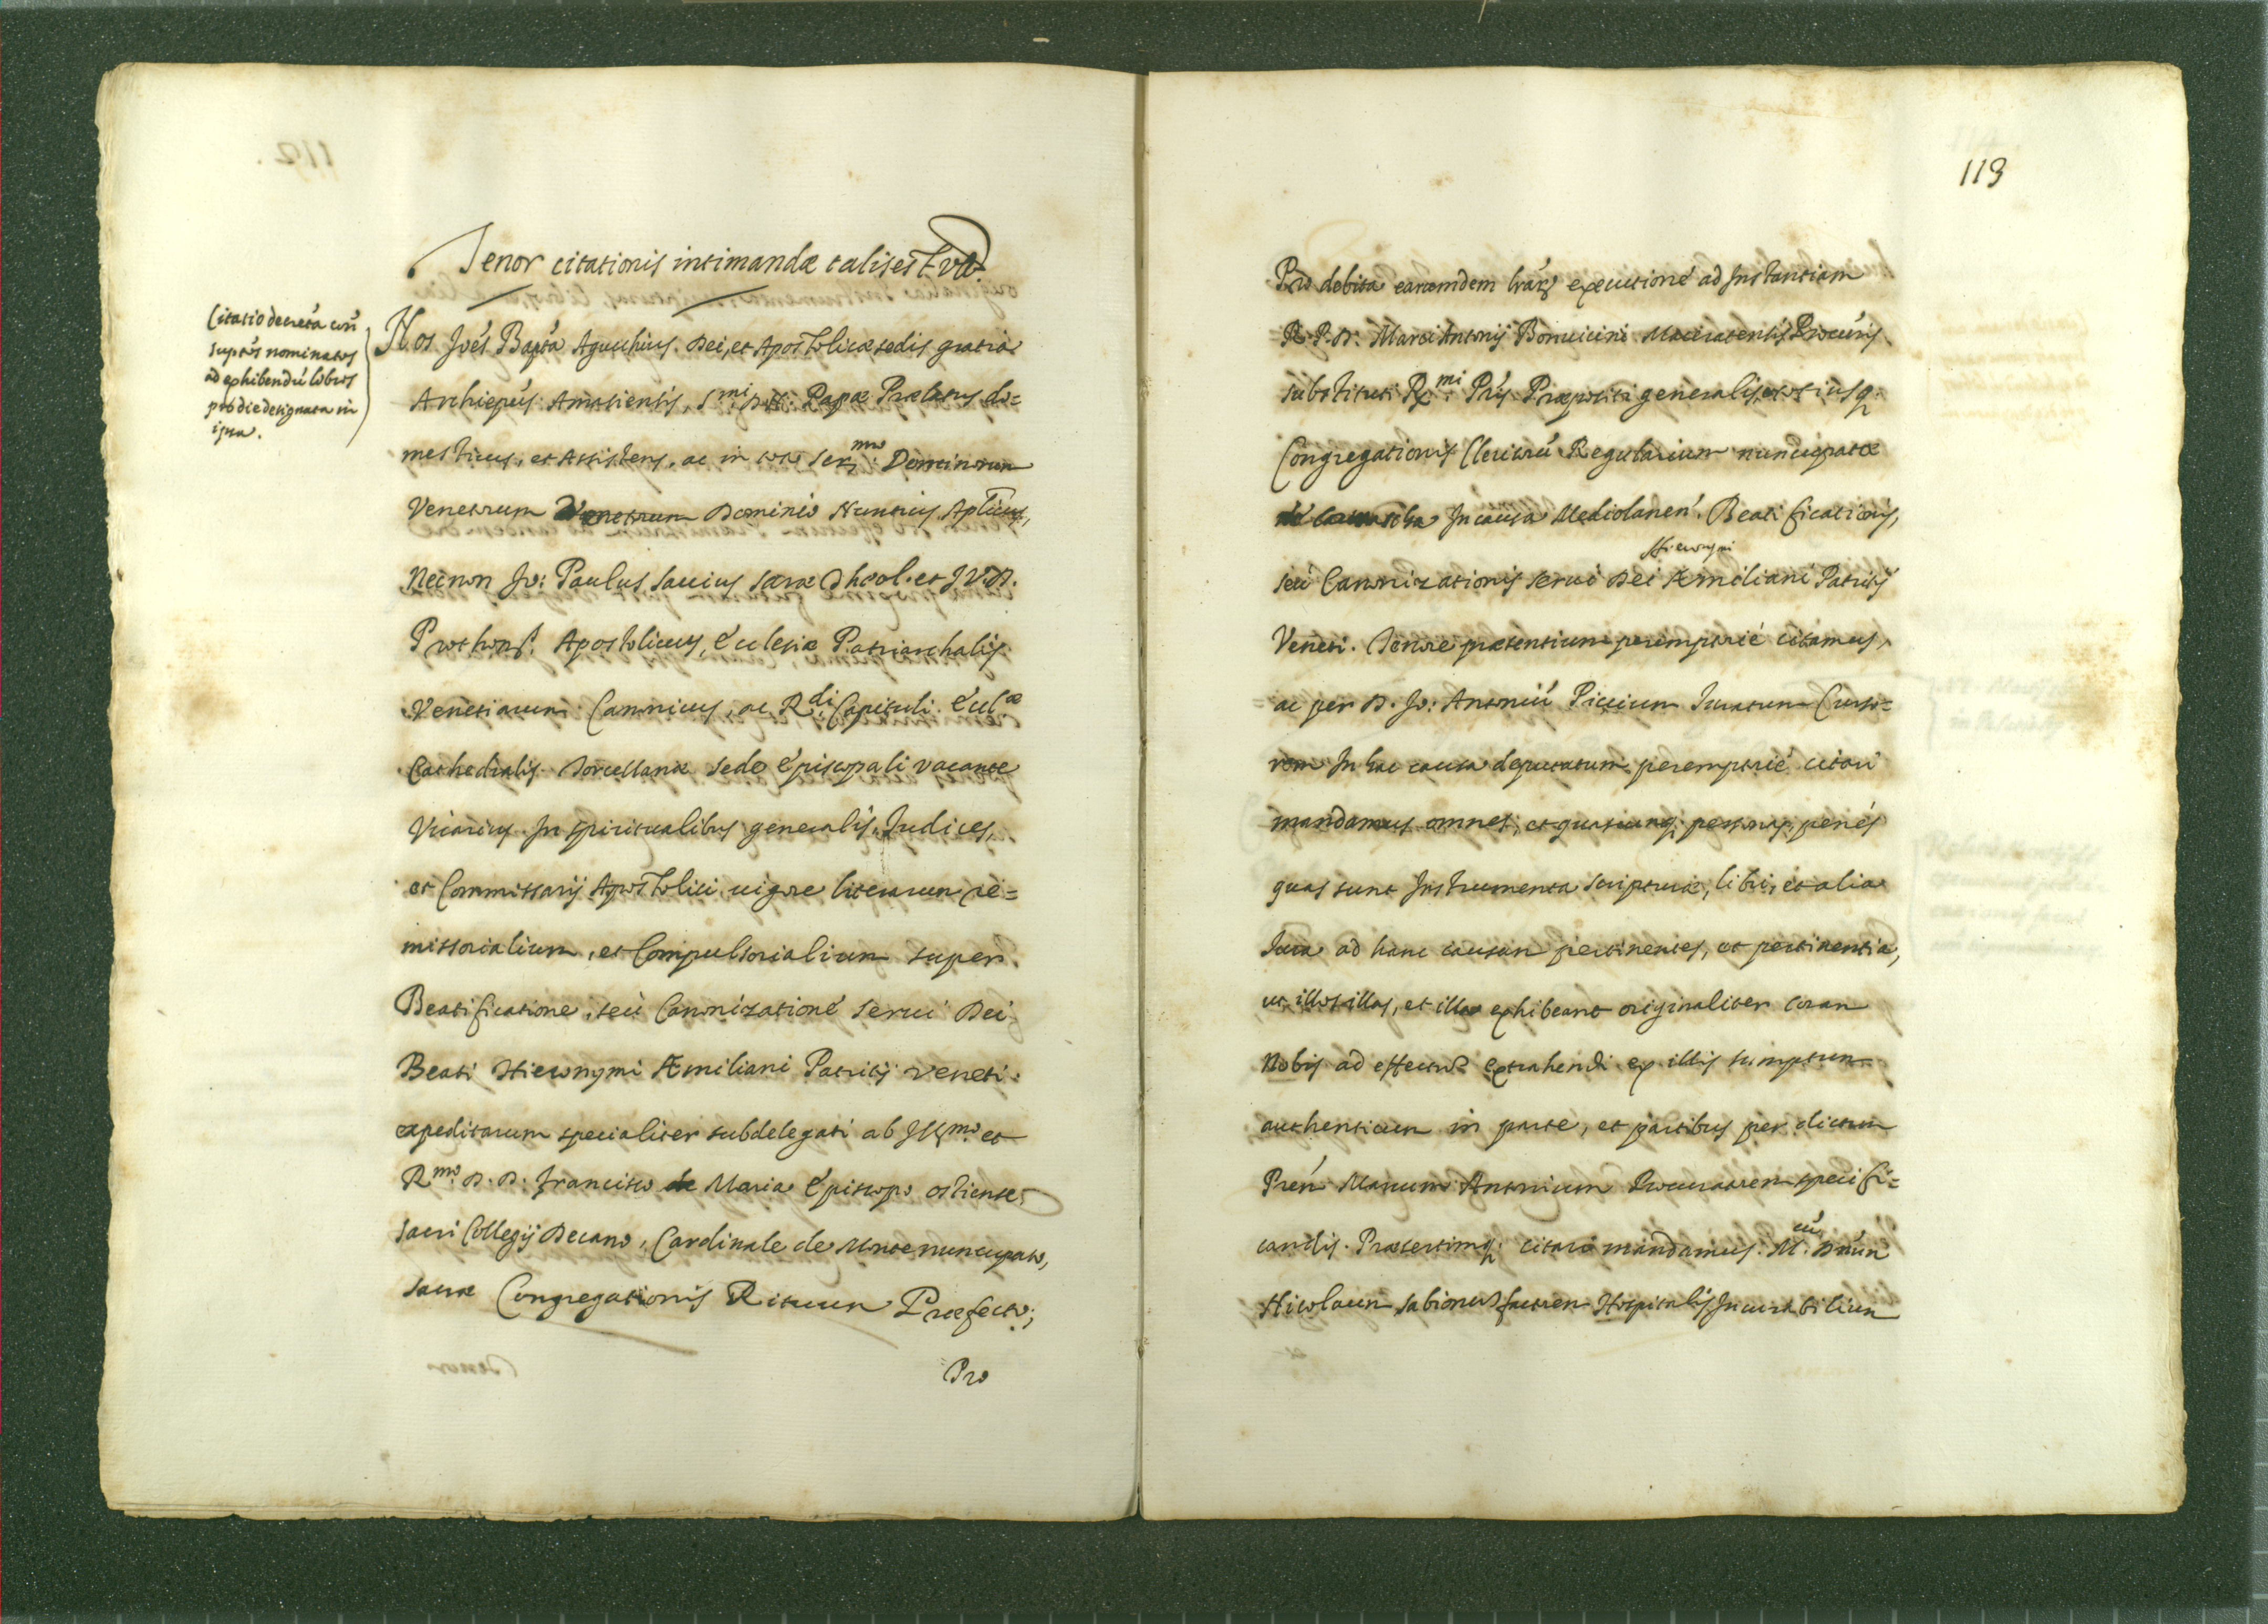 Tenor citationis intimandæ talis est vt
Citatio decreta con
supⁱˢ nominatos
ad exhibendū libros
pro die designata in
ipsa.
Nos Joēs Bapta Agucchius Dei, et Apostolicæ sedis gratia
Archiepus Amasiensis, Smi D.N. Papæ Prælatus do=
mesticus, et Assistens, ac in toto Sermo Dominorum
Venetorum Venetorum Dominio Nuntius Aplicus,
Necnon Jo: Paulus Sauius Sacræ Theol. et J.V.D.
Prothons. Apostolicus, Ecclesiæ Patriarchalis
Venetiarum Canonicus, ac Rdi Capituli Eccl.æ
Cathedralis Torcellanæ sede Episcopali vacante
Vicarius In spiritualibus generalis, Iudices,
et Commissarij Apostolici uigore literarum re=
missorialium, et Compulsorialium super
Beatificatione, seù Canonizatione serui Dei
Beati Hieronymi Æmiliani Patritij Veneti
expeditarum specialiter subdelegati ab Illmo et
Rmo D. D. Francisco Maria Episcopo ostiense,
sacri Collegij Decano, Cardinale de Monte nuncupato,
sacræ Congregationis Rituum Præfecto;
Pro
113
Pro debita earumdem lrarȝ executione ad Instantiam
R.P.D. Marci Antonij Bonuicini Maceratensis Procuris
substituti Rmi Pris Præpositi generalis, totiusq.
Congregationis Clericorū Regularium nuncupatæ
de Somascha In causa Mediolanen. Beatificationis,
Hieronymi
seù Canonizationis serui Dei Æmiliani Patritij
Veneti. Tenore præsentium peremptorie citamus,
ac per D. Jo: Antoniū Piccium Iuratum Curso=
rem In hac causa deputatum peremptorie citari
mandamus omnes, et quascunq. personas, penes
quas sunt Instrumenta scripturæ, libri, et alia
Iura ad hanc causam pertinentes, et pertinentia,
ut illos illas, et illa exhibeant originaliter coram
Nobis ad effectū extrahendi ex illis sumptum
authenticum in parte, et partibus per dictum
Pren Marcum Antonium Procuratorem specifi=
candis. Præsertimq. citari mandamus. M.cū Dnūm
Nicolaum Sabionum factorem Hospitalis Incurabilium